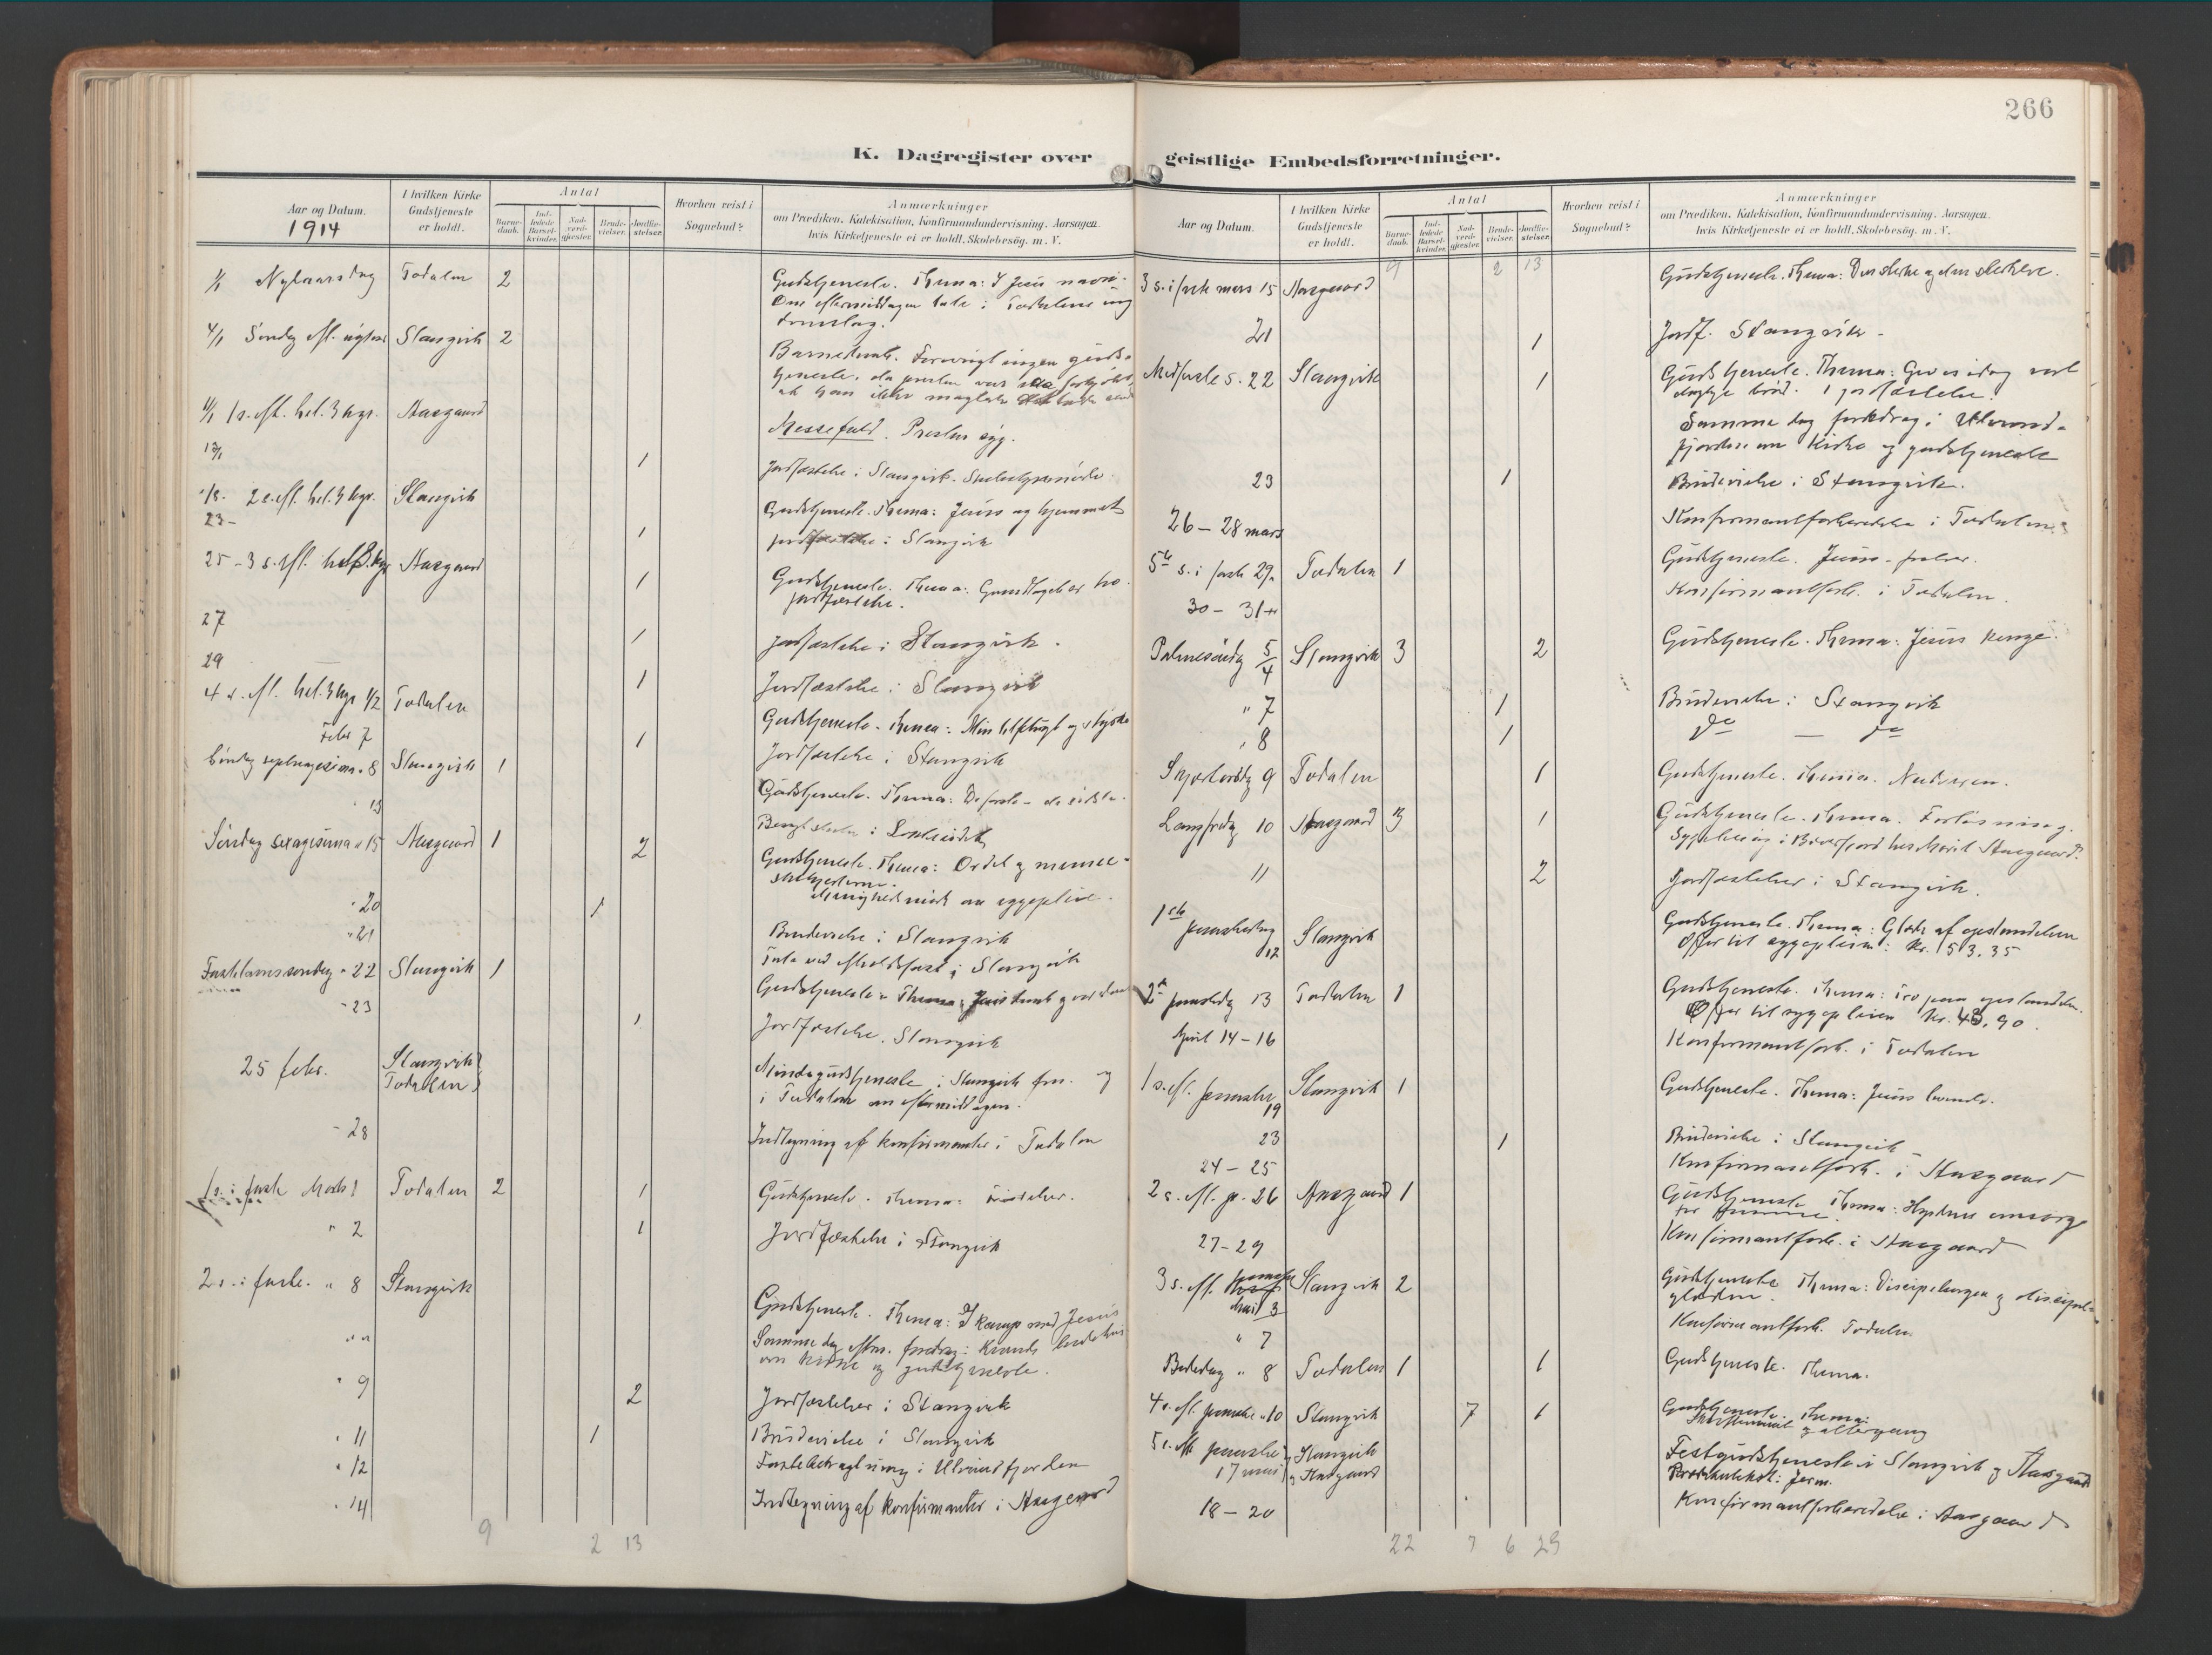 266
K. Dagregister over geistlige Embedsforretninger.
Aar og Datum.
1914
I hvilken Kirke Gudstjeneste er holdt.
Antal
Barne-daab.
Ind-ledede Barsel-kvinder.
Nad-verd-gjester.
Brude-vielser.
Jordfæ-stelser.
Hvorhen reist i Sognebud?
Anmærkninger
om Prædiken, Katekisation, Konfirmandundervisning, Aarsagen,
hvis Kirketjeneste ei er holdt, Skolebesög, m. V.
1/1 Nytaarsdag Todalen 2 Gudstjeneste. Thema: I Jesu navn.
Om eftermiddagen tale i Todalens ung
domslag.
4/1 Søndag eft. nytaar Stangvik 2
Barnedaab. Forøvrigt ingen guds-
tjeneste, da presten var saa forkjølet,
at han ikke magtede
11/1 1 s. eft. hel. 3 kgr. Aasgaard Messefald. Presten syg.
13/1 1 Jordfæstelse i Stangvik.
18 - 2 s. eft. hel. 3 kgr. Stangvik Gudstjeneste. Thema: Jesus og hjemmet
23 - 1 Jordfæstelse i Stangvik
25 - 3 s. eft. hel. 3 kgr Aasgaard 1 Gudstjeneste. Thema: Grundlaget er tro.
Jordfæstelse.
27 1 Jordfæstelse i Stangvik.
29 1 Jordfæstelse i Stangvik
4 s. eft. hel. 3 kgr 1/2 Todalen Gudstjeneste. Thema: Min tilflugt og styrke
Febr 7 1 Jordfæstelse i Stangvik
Søndag septuagesima " 8 Stangvik 1 Gudstjeneste. Thema: De første - de sidste.
" 13
Søndag sexagesima " 15 Aasgaard 1 2 Gudstjeneste. Thema: Ordet og menne-
skehjerterne.
Menighedsmøde om sygepleie.
" 20 1 Brudevielse i Stangvik
" 21 Tale ved i Stangvik
Fastelavnssøndag " 22 Stangvik 1 Gudstjeneste. Thema:
" 23 1 Jordfæstelse. Stangvik
25 febr. Stangvik Todalen Mindegudstjeneste i Stangvik fm. og
i Todalen om eftermiddagen.
" 28 Indtegning af konfirmanter i Todalen
1 s. i faste Marts 1 Todalen 2 1 Gudstjeneste. Thema: Fristelser.
" 2 1 Jordfæstelse i Stangvik
2 s. i faste. " 8 Stangvik Gudstjeneste. Thema: I kamp med Jesus
" " Samme dag eftm. foredrag i Kvande bedehus
om kirke og gudstjeneste.
" 9 2 Jordfæstelser i Stangvik
" 11 1 Brudevielse i Stangvik
" 12 Fastebetragtning i Ulvundfjorden
" 14 Indtegning af konfirmanter i Aasgaard
9 2 13
Aar og Datum.
I hvilken Kirke Gudstjeneste er holdt.
Antal
Barne-daab.
Ind-ledede Barsel-kvinder.
Nad-verd-gjester.
Brude-vielser.
Jordfæ-stelser.
Hvorhen reist i Sognebud?
Anmærkninger
om Prædiken, Katekisation, Konfirmandundervisning, Aarsagen,
hvis Kirketjeneste ei er holdt, Skolebesög, m. V.
9 2 13
3 s. i faste mars 15 Aasgaard Gudstjeneste. Thema: Den sterke og den sterkere.
21 1 Jordf. Stangvik -
Midfaste s. 22 Stangvik 1 Gudstjeneste. Thema: Giv os idag vort
daglige brød. 1 jordfæstelse.
Samme dag foredrag i Ulvund-
fjorden om kirke og gudstjeneste
23 1 Brudevielse i Stangvik.
26 - 28 mars Konfirmantforberedelse i Todalen
5te s. i faste 29 Todalen 1 Gudstjeneste.
30 - 31 Konfirmantforb. i Todalen.
Palmesøndag 5/4 Stangvik 3 2 Gudstjeneste. Thema: Jesus konge.
" 7 1 Brudevielse i Stangvik
" 8 1 do — do
Skjærtorsdag 9 Todalen 1 Gudstjeneste. Thema. Nadveren.
Langfredag 10 Aasgaard 3 1 Gudstjeneste. Thema. Forløsning.
11 2 Jordfæstelser i Stangvik.
1ste paaskedag 12 Stangvik Gudstjeneste. Thema: Glæde af opstandelsen
Offer til sygepleien: kr. 153.35
2den paaskedag 13 Todalen 1 Gudstjeneste. Thema: Tro paa opstandelsen.
Offer til sygepleien kr. 43,90.
April 14 - 16 Konfirmantforb. i Todalen
1 s. eft. paaske 19 Stangvik 1 Gudstjeneste. Thema: Jesus levende.
23 1 Brudevielse i Stangvik
24 - 25 Konfirmantforb. i Aasgaard
2 s. eft. p. 26 Aasgaard 1 Gudstjeneste Thema: Hyrdens omsorg
27 - 29 Konfirmantforb. i Aasgaard
3 s. eft. paaske mai 3 Stangvik 2 Gudstjeneste Thema: Discipelsorgen og discipel-
glæden.
" 7 Konfirmantforb. Todalen
Bededag " 8 Todalen 1 1 Gudstjeneste. Thema.
4 s. eft. paaske " 10 Stangvik 7 1 Gudstjeneste. Thema:
Skriftemaal og altergang
5 s. eft. paaske 17 mai Stangvik og Aasgaard Festgudstjeneste i Stangvik og Aasgaard
18 - 20 Konfirmantforberedelse i Aasgaard
22 7 6 29